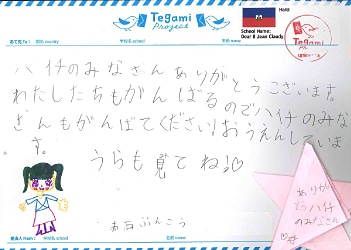 Tegami
Project
Haiti
School Name:
Dear B Jean Claudy
Tegami
Project
あて先To:
国名 country
学校名 school
名前 name
ハイチのみなさんありがとうございます。
わたしたちもがんばるのでハイチのみな
さんもがんばてください!おうえんしていま
す。
うらも見てね!♡
ありが
とうハイチ
のみなさん
ぶんこう
差出人From:
国名 country
学校名 school
名前 name